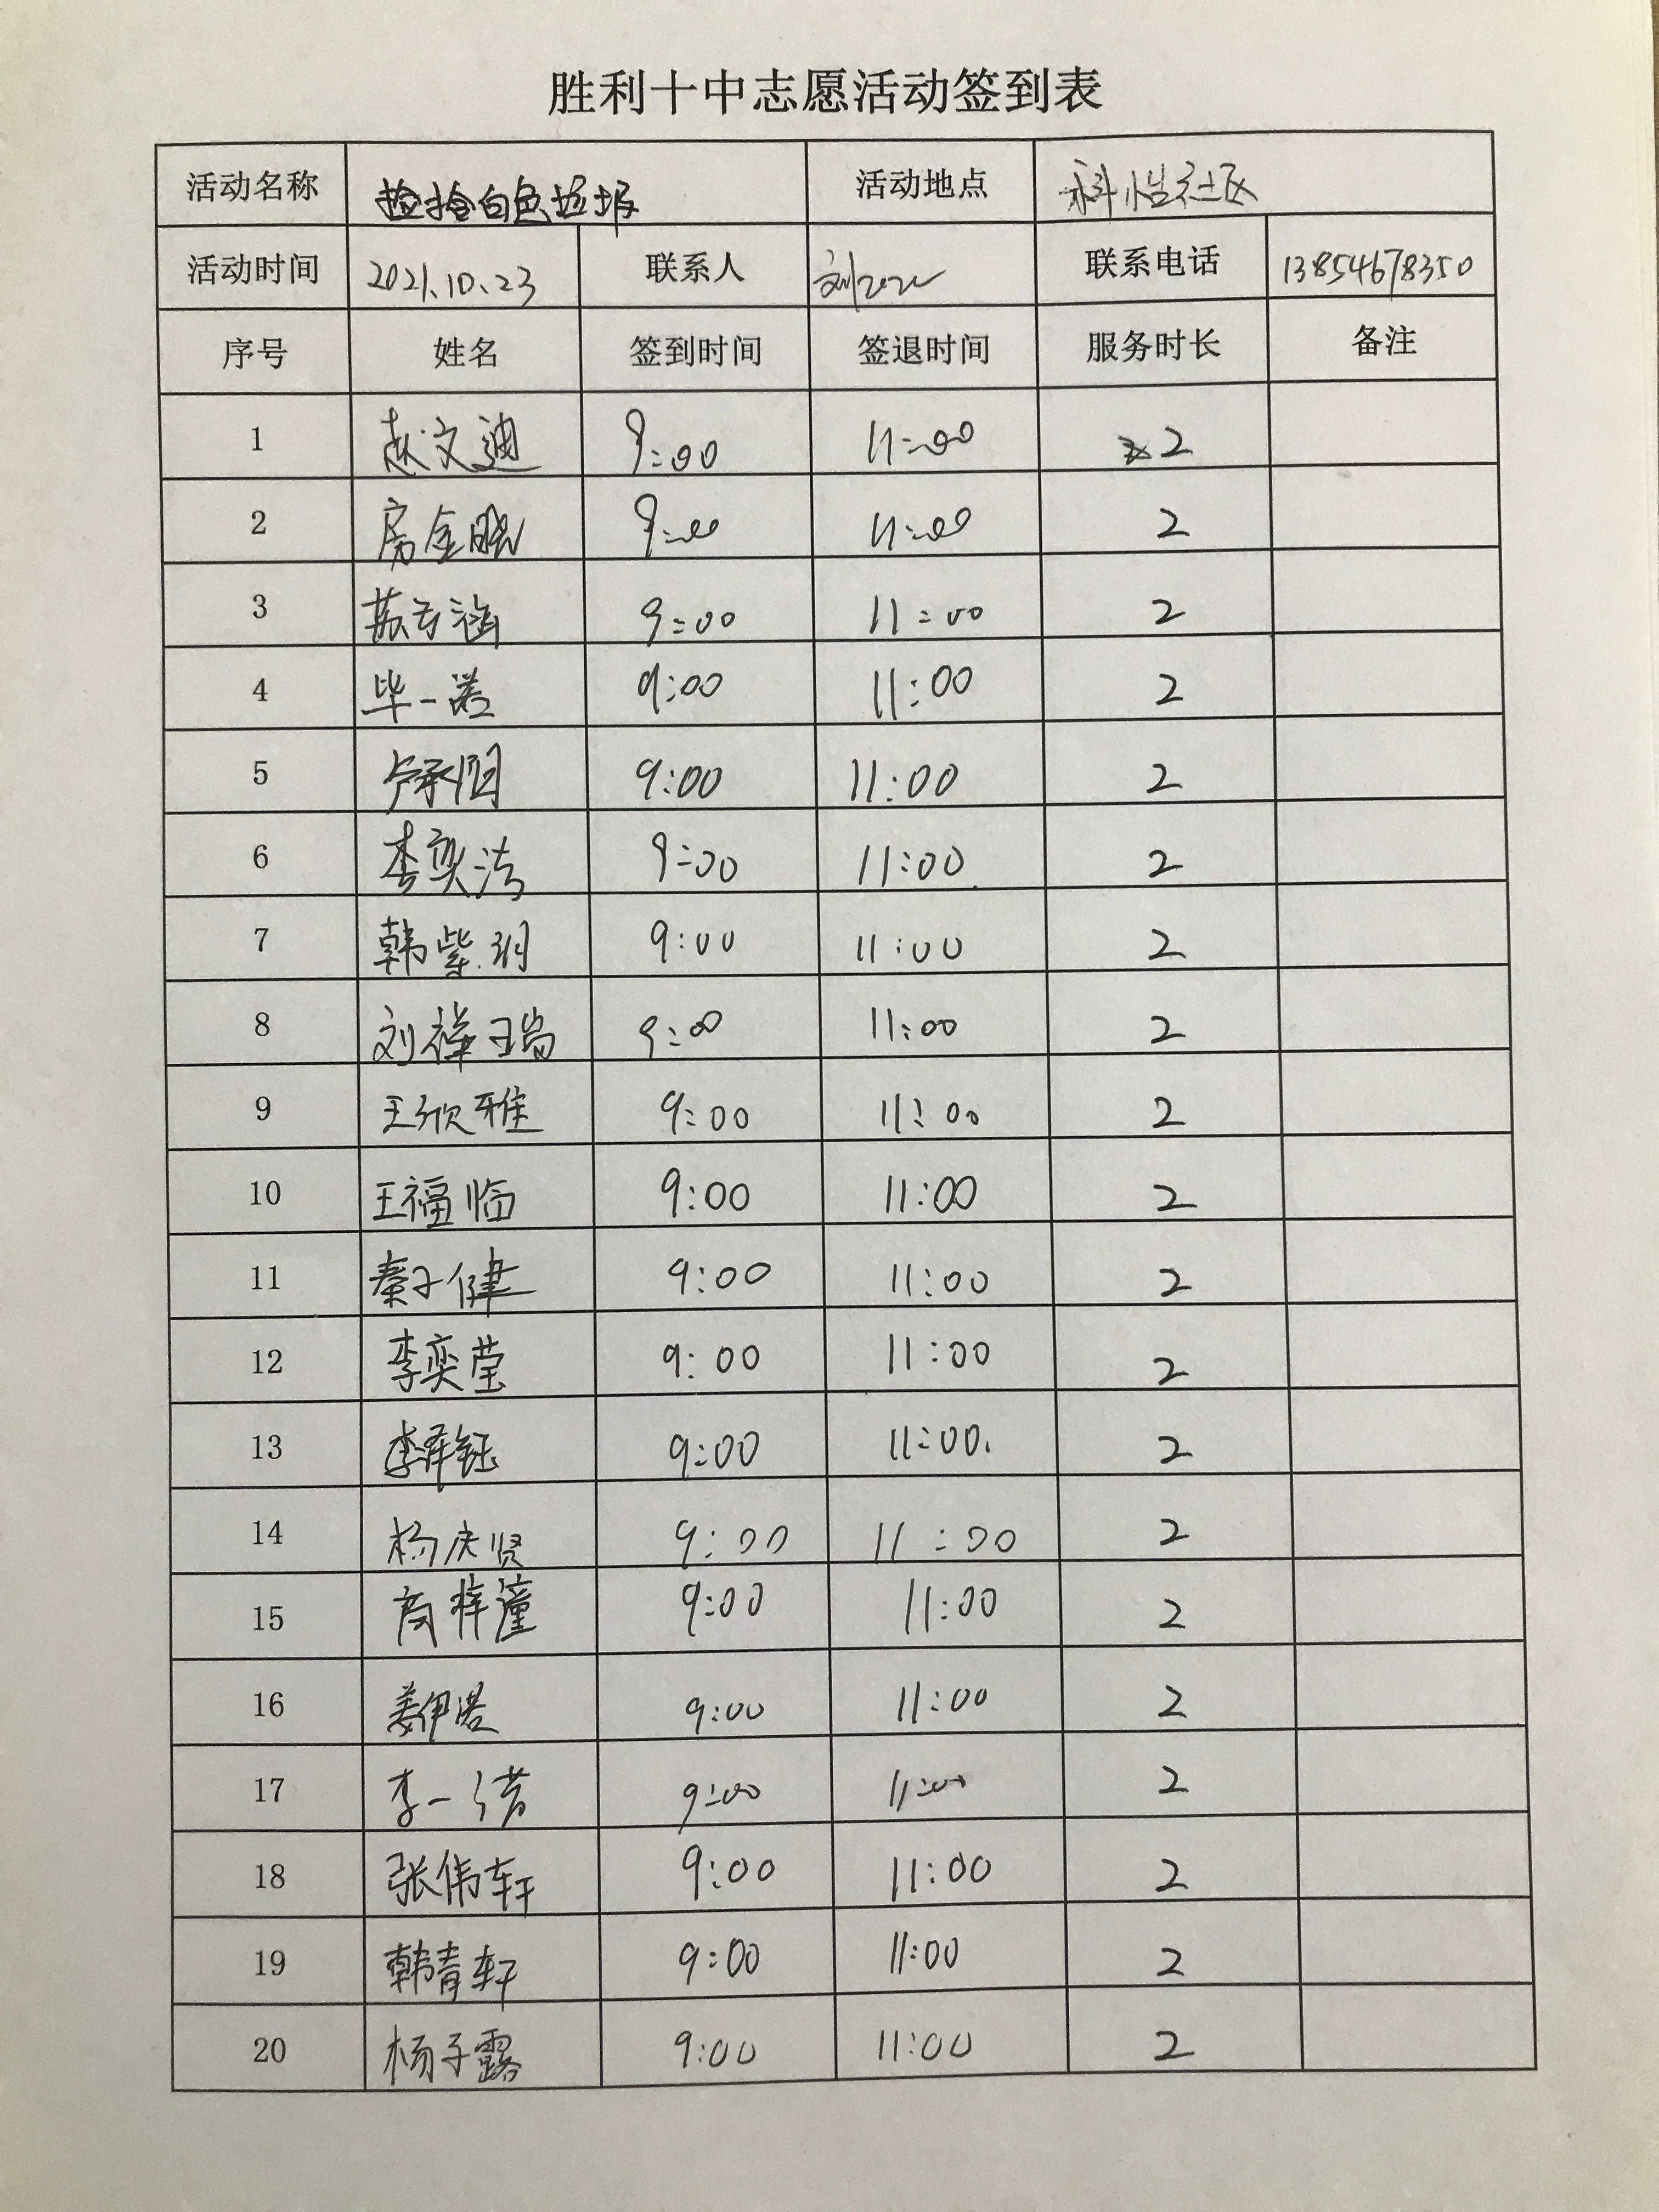 胜利十中志愿活动签到表
活动名称 捡拾白色垃圾 活动地点 科怡社区
活动时间 2021.10.23 联系人 刘 联系电话 13854678350
序号 姓名 签到时间 签退时间 服务时长 备注
1 赵文迪 9:00 11:00 2
2 房金晓 9:00 11:00 2
3 苏方涵 9:00 11:00 2
4 毕一诺 9:00 11:00 2
5 卢承 9:00 11:00 2
6 李奕洁 9:00 11:00 2
7 韩紫玥 9:00 11:00 2
8 刘祥瑞 9:00 11:00 2
9 王欣雅 9:00 11:00 2
10 王福临 9:00 11:00 2
11 秦子健 9:00 11:00 2
12 李奕莹 9:00 11:00 2
13 李泽钰 9:00 11:00 2
14 杨庆贤 9:00 11:00 2
15 商梓潼 9:00 11:00 2
16 姜伊诺 9:00 11:00 2
17 李一诺 9:00 11:00 2
18 张伟轩 9:00 11:00 2
19 韩青轩 9:00 11:00 2
20 杨子露 9:00 11:00 2